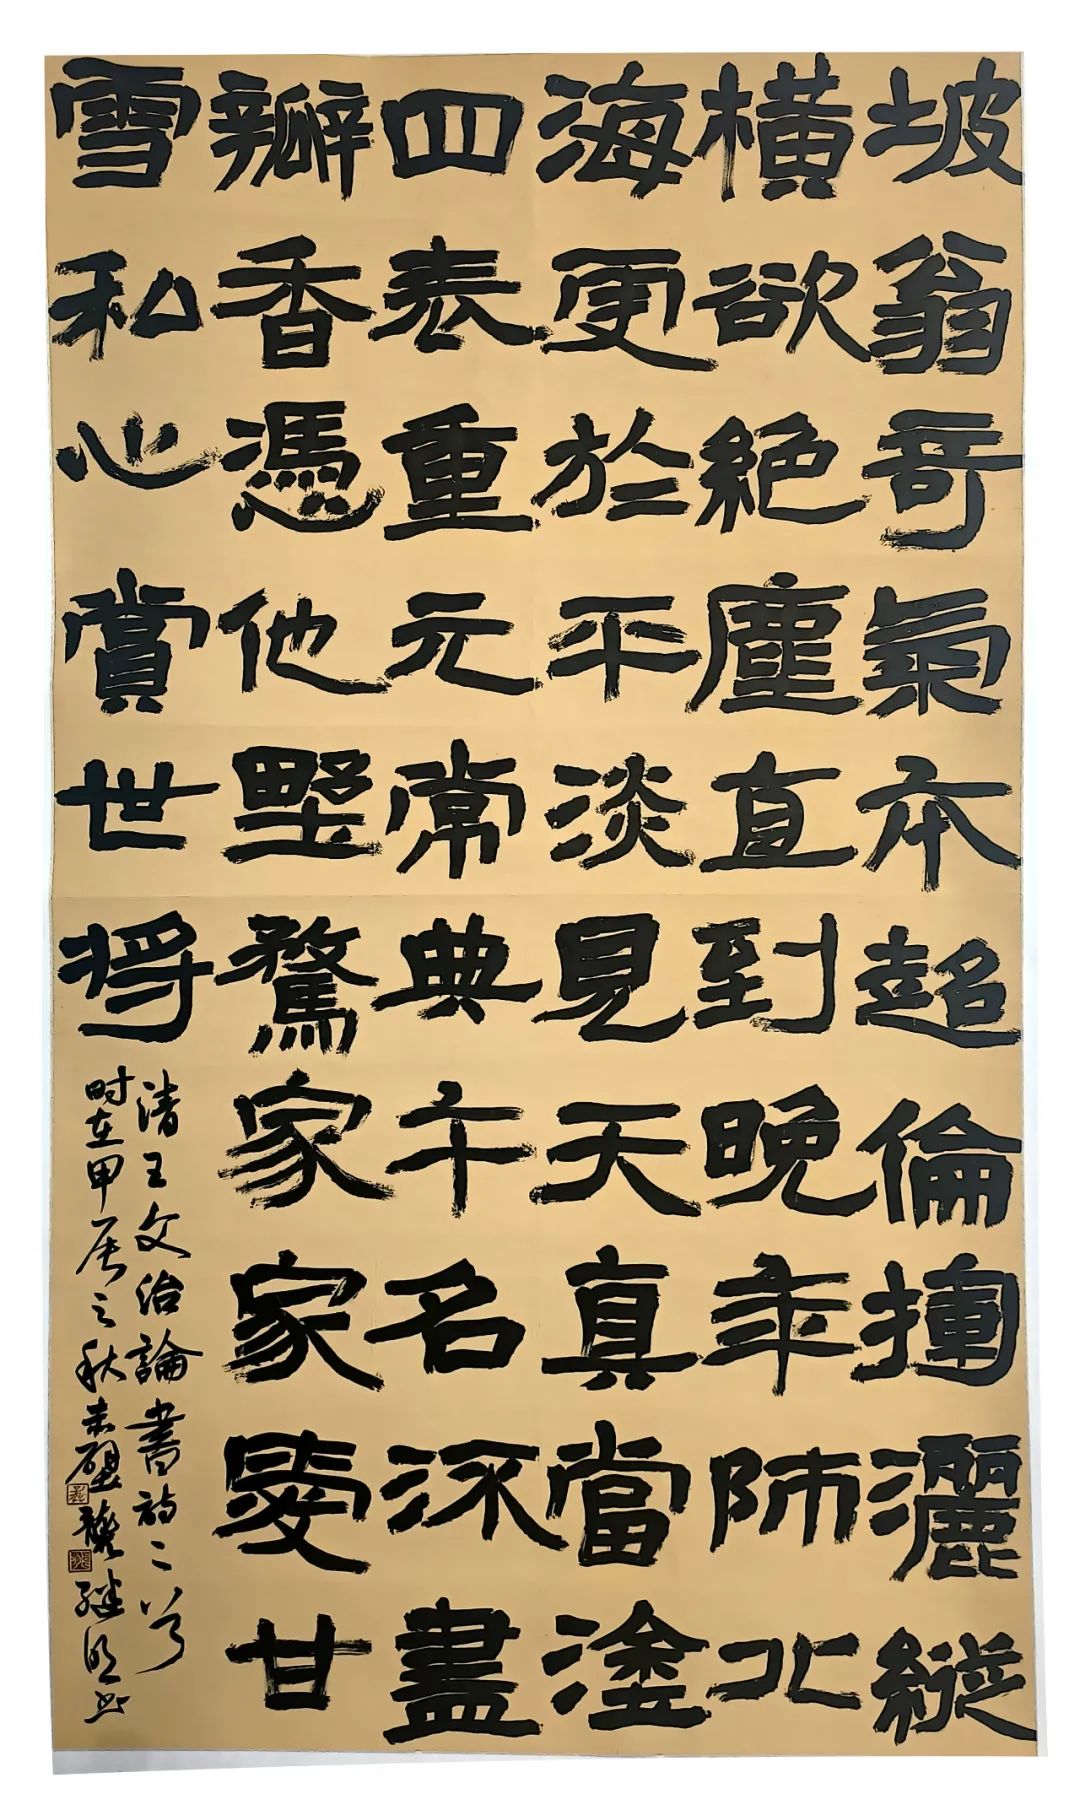 坡翁奇氣本超倫揮灑縱
橫欲絕塵直到晚年師北
海更於平淡見天真當塗
四表重元常典午名流盡
瓣香憑他墅鶩家家愛甘
雪私心賞世將
清王文治論書詩二首
时在甲辰之秋赤壁龔继书